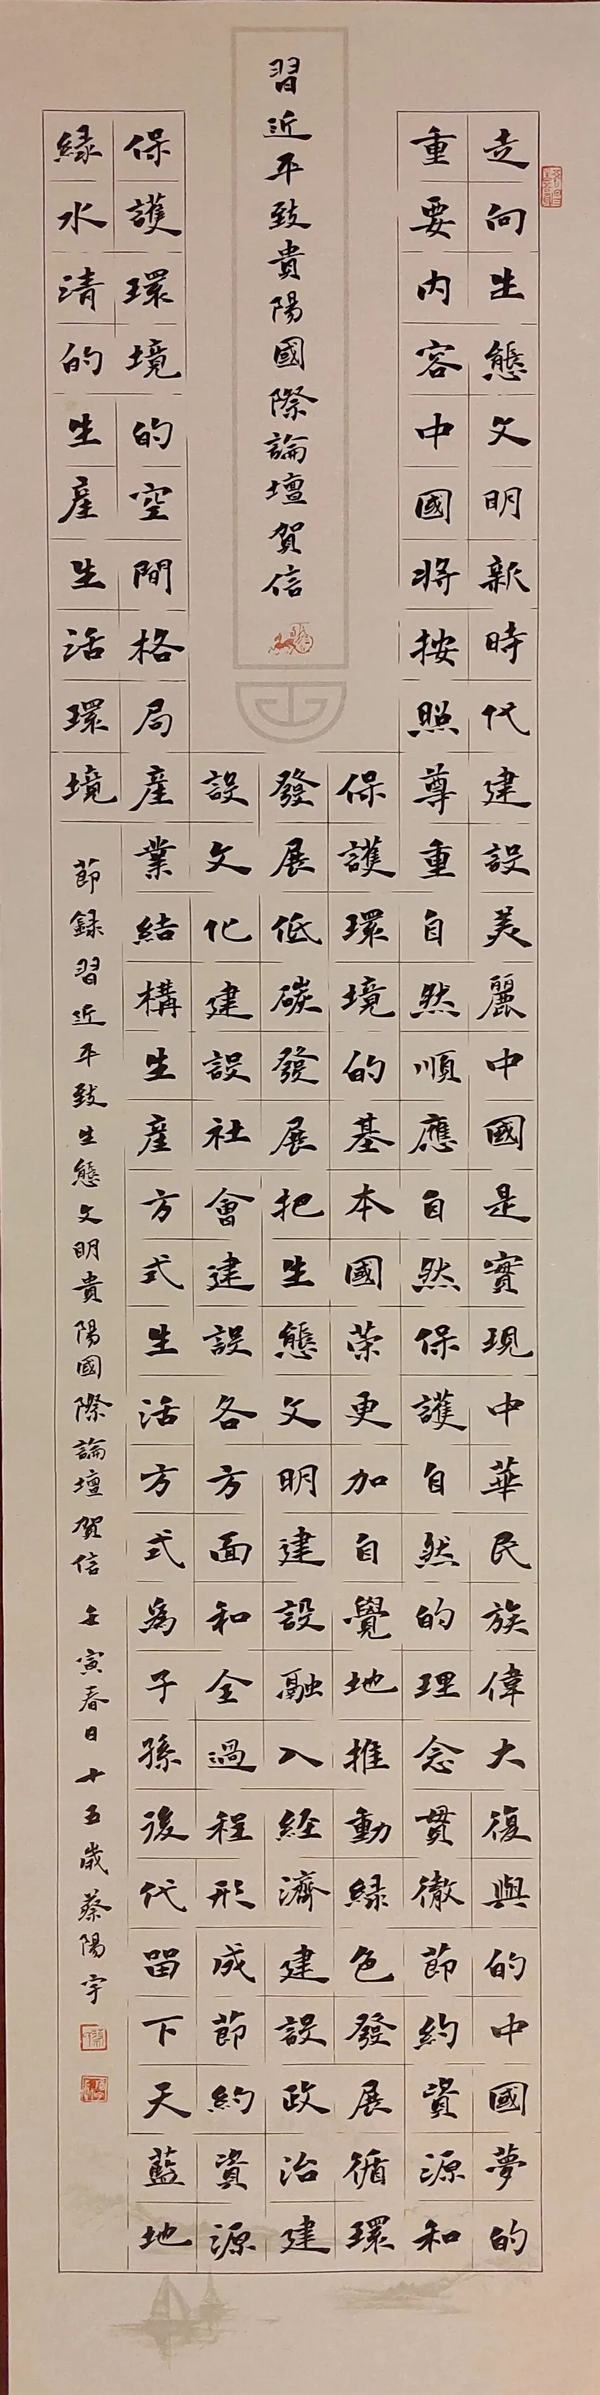 習近平致貴陽國際論壇賀信
走向生態文明新時代建設美麗中國是實現中華民族偉大復興的中國夢的
重要内容中國將按照尊重自然順應自然保護自然的理念貫徹節約資源和
保護環境的基本國策更加自覺地推動緑色發展循環
發展低碳發展把生態文明建設融入經濟建設政治建
設文化建設社會建設各方面和全過程形成節約資源
保護環境的空間格局產業結構生產方式生活方式為子孫後代留下天藍地
緑水清的生產生活環境
節録習近平致生態文明貴陽國際論壇賀信 壬寅春日十五歲蔡陽宇